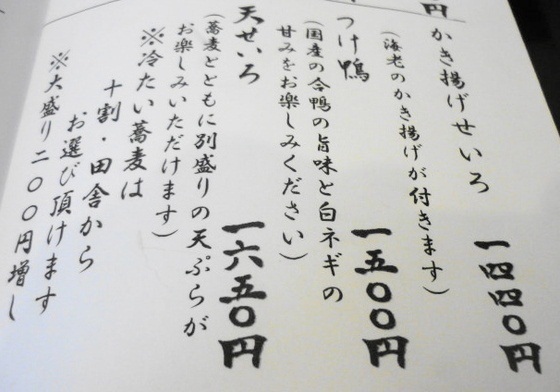 円
かき揚げせいろ 一四四〇円
(海老のかき揚げが付きます)
つけ鴨 一五〇〇円
(国産の合鴨の旨味と白ネギの
甘みをお楽しみください)
天せいろ 一六五〇円
(蕎麦とともに別盛りの天ぷらが
お楽しみいただけます)
※冷たい蕎麦は
十割・田舎から
お選び頂けます
※大盛り二〇〇円増し